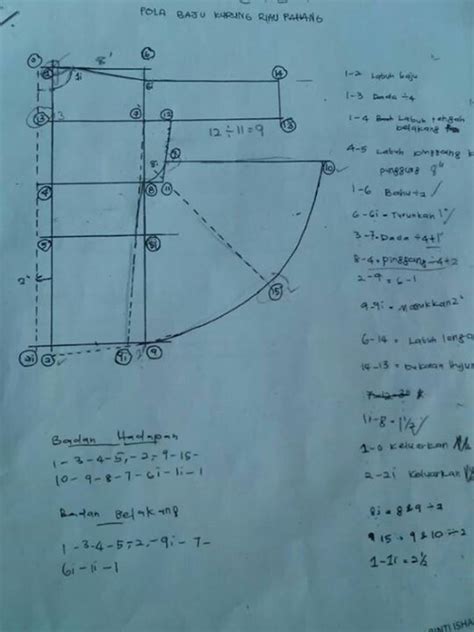 POLA BAJU KURUNG RIAU PAHANG
8'
1i
6
6i
14
3
7
12
13
12 ÷ 11 = 9
8i
10
4
8
11
5
5i
2"
15
2i
2
9i
9
1-2 Labuh baju
1-3 Dada ÷4
1-4 Labuh tengah
belakang
4-5 Labuh pinggang
pinggung 8"
1-6 Bahu ÷2
6-6i = Turunkan 1"
3-7 = Dada ÷4+1"
8-4 = pinggang ÷4+2
2-9 = 6-1
9-9i = Masukkan 2"
6-14 = Labuh
14-13 = bukaan
11-8 = 1½
1-0 Keluarkan
2-2i Keluarkan
8i = 8 & 9 ÷ 2
15 = 9 & 10 ÷ 2
1-1i = 2½
Badan Hadapan
1-3-4-5-2-9-15-
10-9-8-7-6i-1i-1
Badan Belakang
1-3-4-5-2-9i-7-
6i-1i-1